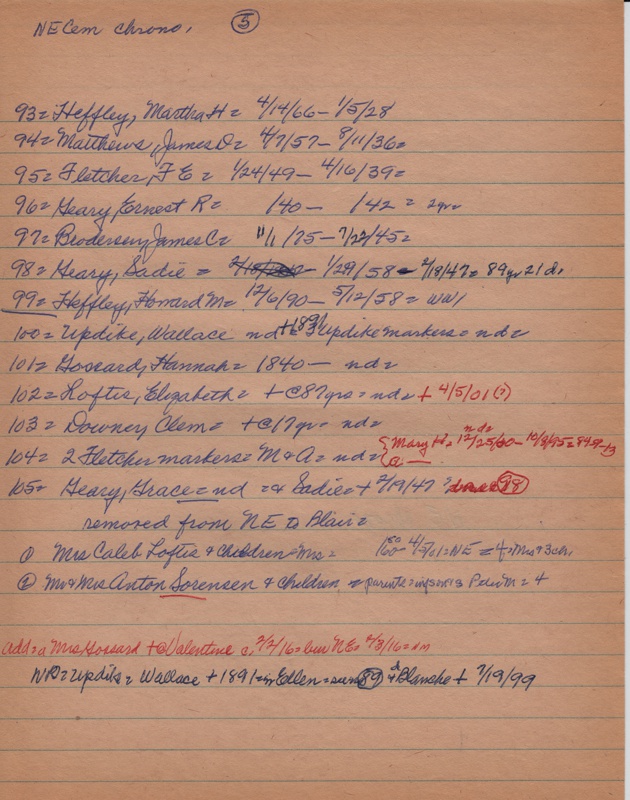 NECem chrono, 5
93= Heffley, Martha H= 4/14/66 - 1/5/28
94= Matthews, James O= 4/7/57 - 8/11/36=
95= Fletcher, F E = 1/24/49 - 4/16/39=
96= Geary, Ernest R= /40 - /42 = 2yr=
97= Brodersen, James C= 11/1/75 - 7/22/45=
98= Geary, Sadie = 1/29/58 - 2/18/47= 89yr 21 d=
99= Heffley, Howard M= 12/6/90 - 5/12/58 = WW1
100= Updike, Wallace nd +1891 3 updike markers= nd=
101= Gossard, Hannah= 1840 - nd=
102= Loftis, Elizabeth= + C87yrs= nd= + 4/5/01(?)
103= Downey Clem= +C17yr= nd=
104= 2 Fletcher markers= M & A= nd= { Mary H= 12/25/00 - 10/8/95=
nd=
a -
105= Geary, Grace= nd =& Sadie= + 2/19/47 98
removed from NE to Blair=
1 Mrs Caleb Loftis & Children Mrs= 4/7/01=NE = 4=Mrs+3ch,
2 Mr & Mrs Anton Sorensen & Children = parents= Peter M = 4
add= a Mrs Gossard +@Valentine c, 2/2/16= bur NE= 2/3/16=
NB= Updike= Wallace + 1891= Edlen= 89 & Blanche + 7/19/99